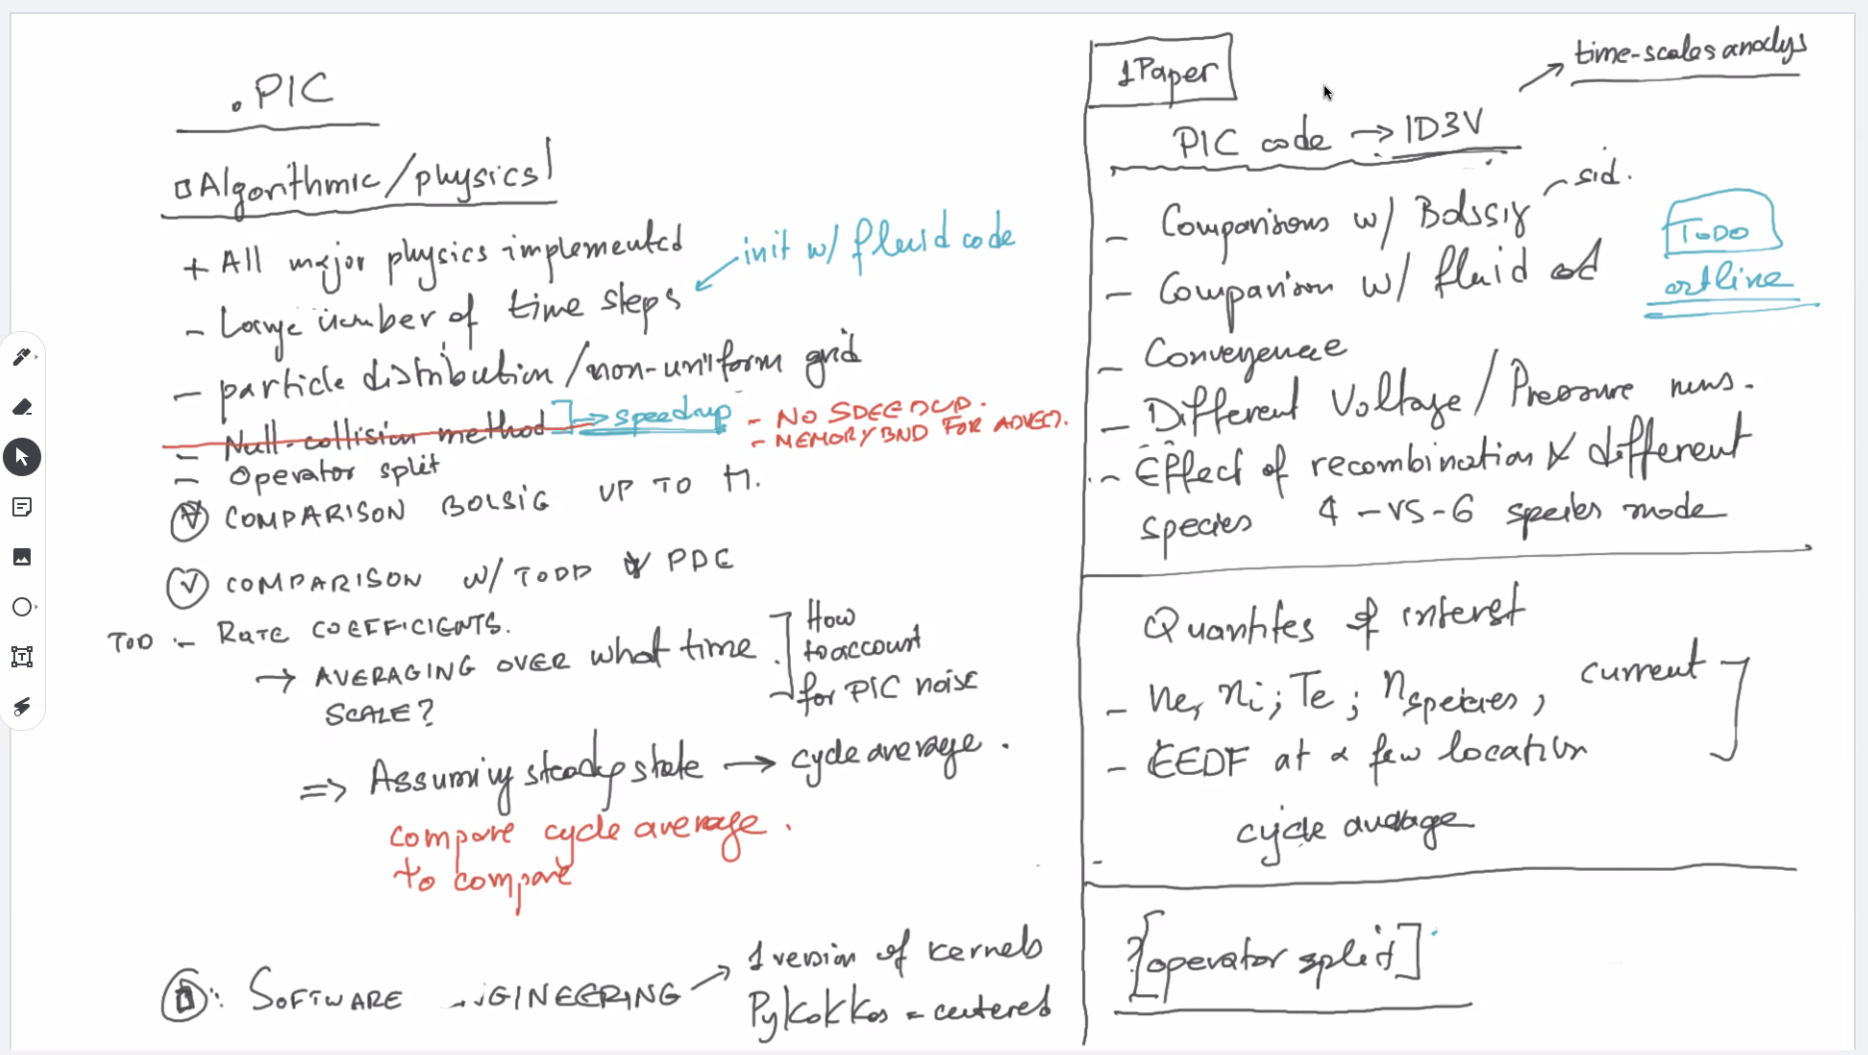 . PIC
Algorithmic/physics
+ All major physics implemented
init w/ fluid code
- Large number of time steps
- particle distribution/non-uniform grid
- Null-collision method → speedup
- NO SPEEDUP.
- MEMORY BND FOR ADVEC).
- Operator split
COMPARISON BOLSIG UP TO
COMPARISON W/ TODD & PDE
TOD :- RATE COEFFICIENTS.
→ AVERAGING OVER what time
SCALE?
How
to account
for PIC noise
⇒ Assuming steady state → cycle average.
compare cycle average.
to compare
: SOFTWARE GINEERING
1 version of kernels
PyKokkos = centered
1 Paper
time-scales analys
PIC code → 1D3V
- Comparisons w/ Bolssig
sid.
- Comparison w/ fluid cd
TODO
outline
- Convergence
- Different Voltage/Pressure runs.
- Effect of recombination & different
species 4-vs-6 species mode
Quantites of interest
- ne, ni; Te; nspecies, current
- EEDF at a few location
cycle average
?[operator split]